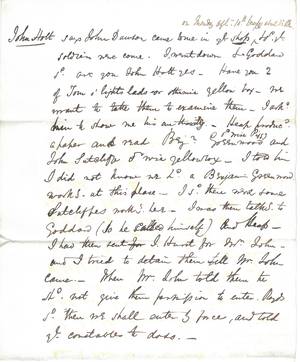 on Tuesday Septr. 10th
John Holt says John Dawson came to me in ye shop, sd. yt.
soldiers were come. I went down & Goddard
sd. are you John Holt yes. Have you 2
of Tom's lights lads or otherwise yellow boy - we
want to take them to examine them. I ask'd
him to show me his authority - Heap produc'd
a paper and read Benj. Greenwood and
John Sutcliffe otherwise yellow boy. I told him
I did not know we had a Benjamin Greenwood
works at this place - I sd. there were some
Sutcliffes works here. I was then talking to
Goddard (so he called himself) and Heap -
I had then sent for J. Hunt for Mr. John -
and I tried to detain them till Mr. John
came. When Mr. John told them he
sd. not give them permission to enter.
sd. then we shall enter by force, and told
ye constables to do so. -